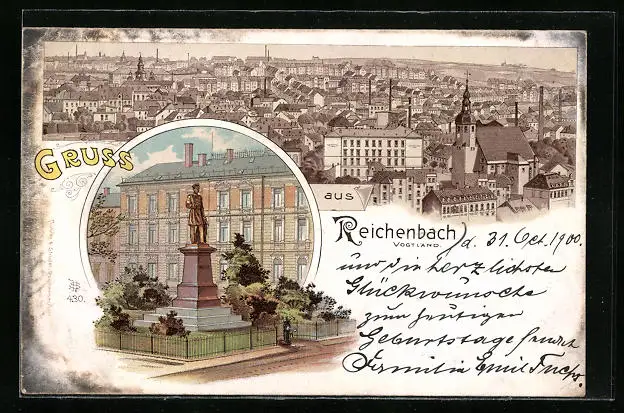 GRUSS
aus
Reichenbach
VOGTLAND.
d. 31. Oct. 1900.
und die herzlichsten
Glückwünsche
zum heutigen
Geburtstage sendet
Familie Emil Fuchs.
430.